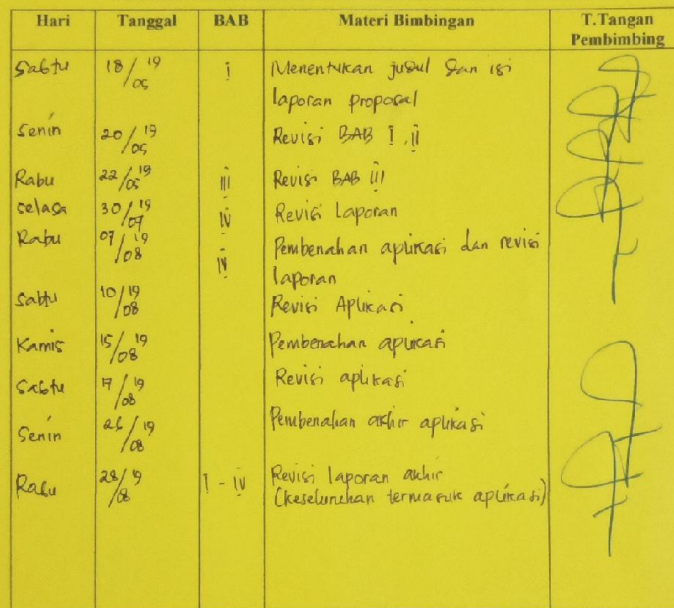 Hari Tanggal BAB Materi Bimbingan T.Tangan
Pembimbing
Sabtu 18/05 19 I Menentukan judul dan isi
laporan proposal
Senin 20/05 19 Revisi BAB I, II
Rabu 22/05 19 III Revisi BAB III
Selasa 30/07 19 IV Revisi Laporan
Rabu 07/08 19 IV Pembenahan aplikasi dan revisi
laporan
Sabtu 10/08 19 Revisi Aplikasi
Kamis 15/08 19 Pembenahan aplikasi
Sabtu 17/08 19 Revisi aplikasi
Senin 26/08 19 Pembenahan akhir aplikasi
Rabu 28/8 19 I - IV Revisi laporan akhir
(keseluruhan termasuk aplikasi)